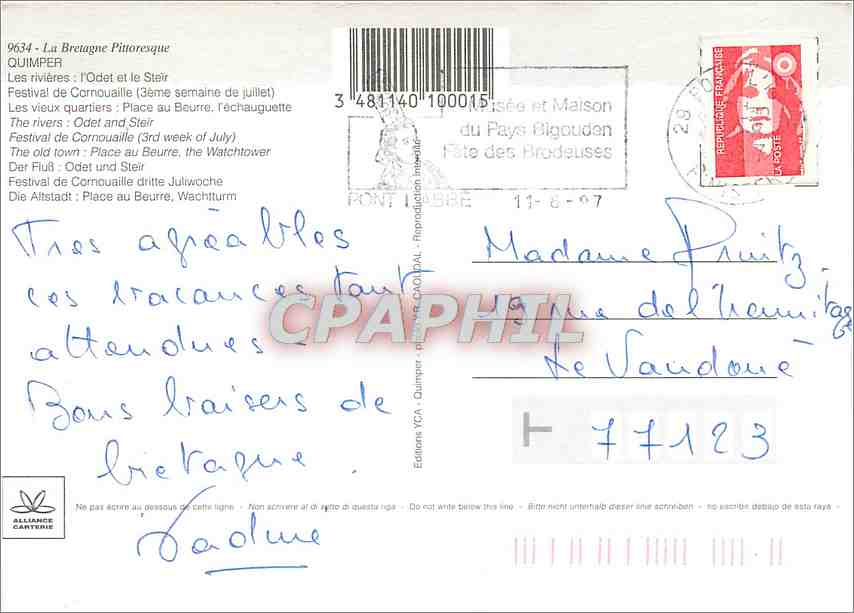 9634 - La Bretagne Pittoresque
QUIMPER
Les rivières : l'Odet et le Steïr
Festival de Cornouaille (3ème semaine de juillet)
Les vieux quartiers : Place au Beurre, l'échauguette
The rivers : Odet and Steïr
Festival de Cornouaille (3rd week of July)
The old town : Place au Beurre, the Watchtower
Der Fluß : Odet und Steïr
Festival de Cornouaille dritte Juliwoche
Die Altstadt : Place au Beurre, Wachtturm
3 481140 100015
Musée et Maison
du Pays Bigouden
Fête des Brodeuses
PONT L'ABBE 11-8-97
29 PO
REPUBLIQUE FRANÇAISE
LA POSTE
Tres agréables
ces vacances tant
attendues -
Bons baisers de
bretagne.
Nadine
Editions YCA - Quimper - photo CAOUDAL - Reproduction Interdite
CPAPHIL
Madame Pruitz.
19 rue de l'hermitage
Le Vaudoué
77123
ALLIANCE
CARTERIE
Ne pas écrire au dessous de cette ligne - Non scrivere al di sotto di questa riga - Do not write below this line - Bitte nicht unterhalb dieser linie schreiben - no escribir debajo de esta raya -